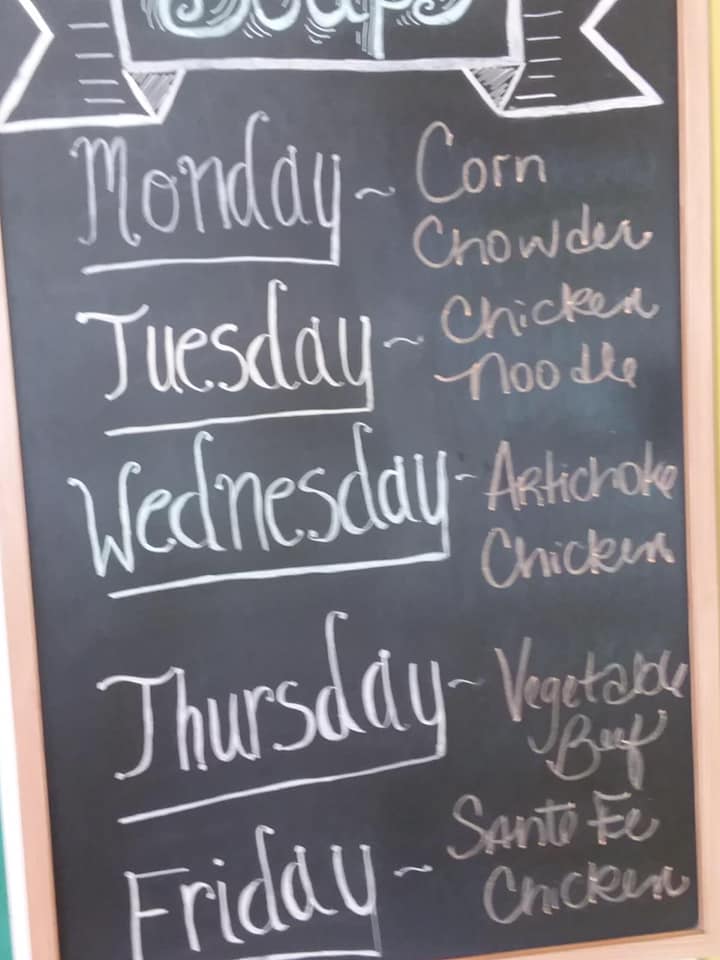 Soups
Monday ~ Corn
Chowder
Tuesday ~ Chicken
Noodle
Wednesday - Artichoke
Chicken
Thursday ~ Vegetable
Beef
Friday ~ Sante Fe
Chicken